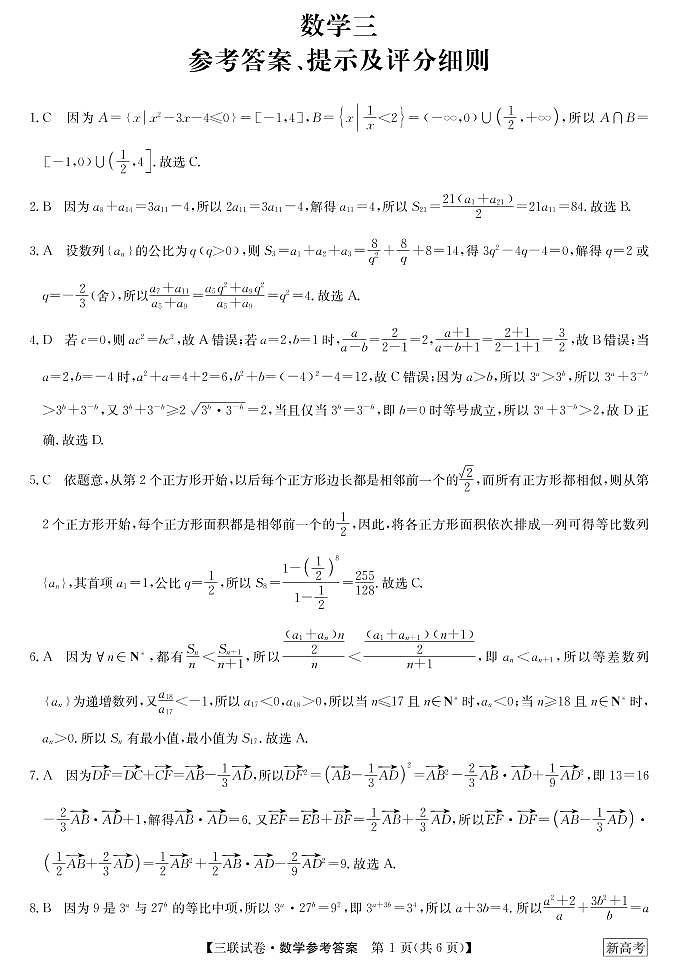 数学三
参考答案、提示及评分细则
1. C 因为 A={x|x²-3x-4≤0}=[-1,4],B={x|1/x<2}=(-∞,0)∪(1/2,+∞),所以 A∩B=
[-1,0)∪(1/2,4].故选 C.
2. B 因为 a₈+a₁₄=3a₁₁-4,所以 2a₁₁=3a₁₁-4,解得 a₁₁=4,所以 S₂₁=21(a₁+a₂₁)/2=21a₁₁=84.故选 B.
3. A 设数列{aₙ}的公比为 q(q>0),则 S₃=a₁+a₂+a₃=8/q²+8/q+8=14,得 3q²-4q-4=0,解得 q=2 或
q=-2/3(舍),所以(a₇+a₁₁)/(a₅+a₉)=(a₅q²+a₉q²)/(a₅+a₉)=q²=4.故选 A.
4. D 若 c=0,则 ac²=bc²,故 A 错误;若 a=2,b=1 时,a/(a-b)=2/(2-1)=2,(a+1)/(a-b+1)=(2+1)/(2-1+1)=3/2,故 B 错误;当
a=2,b=-4 时,a²+a=4+2=6,b²+b=(-4)²-4=12,故 C 错误;因为 a>b,所以 3ᵃ>3ᵇ,所以 3ᵃ+3⁻ᵇ
>3ᵇ+3⁻ᵇ,又 3ᵇ+3⁻ᵇ≥2√(3ᵇ·3⁻ᵇ)=2,当且仅当 3ᵇ=3⁻ᵇ,即 b=0 时等号成立,所以 3ᵃ+3⁻ᵇ>2,故 D 正
确.故选 D.
5. C 依题意,从第 2 个正方形开始,以后每个正方形边长都是相邻前一个的√2/2,而所有正方形都相似,则从第
2 个正方形开始,每个正方形面积都是相邻前一个的1/2,因此,将各正方形面积依次排成一列可得等比数列
{aₙ},其首项 a₁=1,公比 q=1/2,所以 S₈=(1-(1/2)⁸)/(1-1/2)=255/128.故选 C.
6. A 因为∀n∈N*,都有Sₙ/n<Sₙ₊₁/(n+1),所以((a₁+aₙ)n/2)/n<((a₁+aₙ₊₁)(n+1)/2)/(n+1),即 aₙ<aₙ₊₁,所以等差数列
{aₙ}为递增数列,又a₁₈/a₁₇<-1,所以 a₁₇<0,a₁₈>0,所以当 n≤17 且 n∈N*时,aₙ<0;当 n≥18 且 n∈N*时,
aₙ>0.所以 Sₙ 有最小值,最小值为 S₁₇.故选 A.
7. A 因为DF→=DC→+CF→=AB→-1/3AD→,所以DF→²=(AB→-1/3AD→)²=AB→²-2/3AB→·AD→+1/9AD→²,即 13=16
-2/3AB→·AD→+1,解得AB→·AD→=6.又EF→=EB→+BF→=1/2AB→+2/3AD→,所以EF→·DF→=(AB→-1/3AD→)·
(1/2AB→+2/3AD→)=1/2AB→²+1/2AB→·AD→-2/9AD→²=9.故选 A.
8. B 因为 9 是 3ᵃ 与 27ᵇ 的等比中项,所以 3ᵃ·27ᵇ=9²,即 3ᵃ⁺³ᵇ=3⁴,所以 a+3b=4.所以(a²+2)/a+(3b²+1)/b=a
【三联试卷·数学参考答案 第 1 页(共 6 页)】 新高考